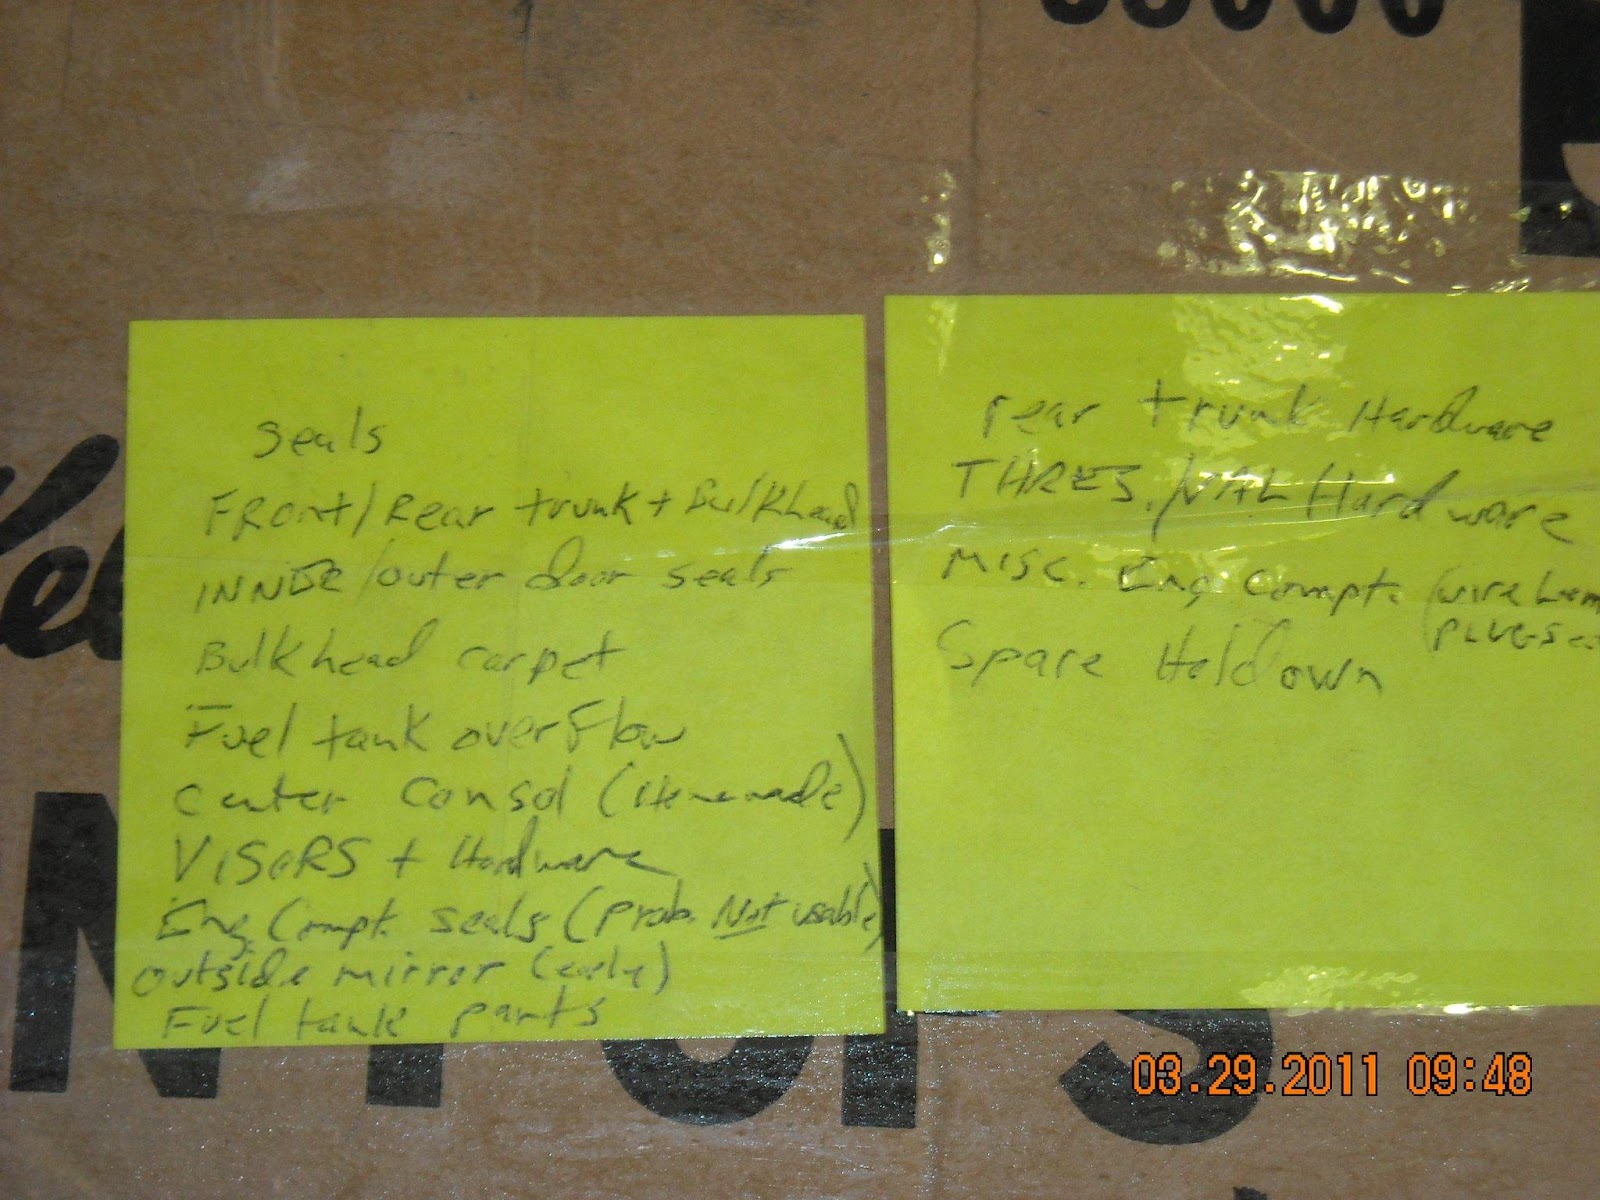 seals
FRont/Rear trunk + Bulkhead
INNER/outer door seals
Bulkhead carpet
Fuel tank overFlow
center consol (Homemade)
VISORS + Hardware
Eng. Compt. seals (prob. Not usable)
outside mirror (early)
Fuel tank parts
rear trunk Hardware
THRES./VAL Hardware
MISC. Eng Compt. (wire
PLUGS
Spare Holdown
03.29.2011 09:48